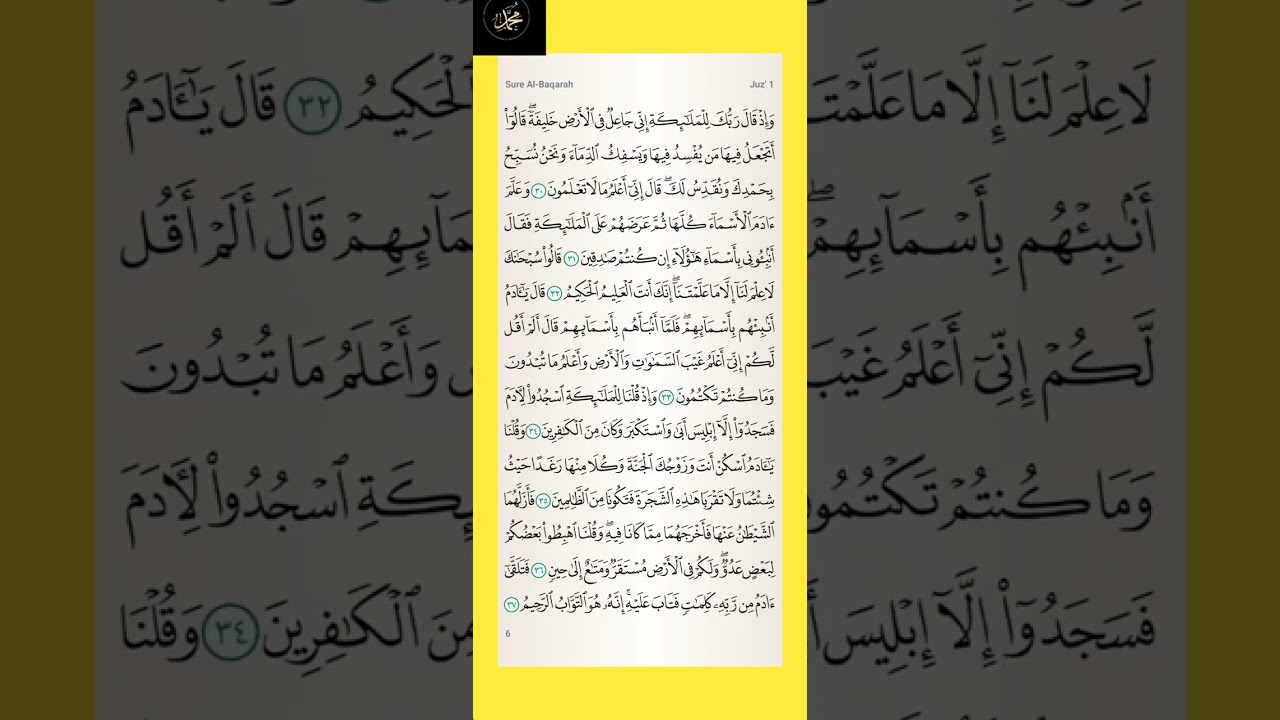 محمد
Sure Al-Baqarah
Juz' 1
وَإِذْ قَالَ رَبُّكَ لِلْمَلَـٰٓئِكَةِ إِنِّى جَاعِلٌ فِى ٱلْأَرْضِ خَلِيفَةً ۖ قَالُوٓا۟
أَتَجْعَلُ فِيهَا مَن يُفْسِدُ فِيهَا وَيَسْفِكُ ٱلدِّمَآءَ وَنَحْنُ نُسَبِّحُ
بِحَمْدِكَ وَنُقَدِّسُ لَكَ ۖ قَالَ إِنِّىٓ أَعْلَمُ مَا لَا تَعْلَمُونَ ٣٠ وَعَلَّمَ
ءَادَمَ ٱلْأَسْمَآءَ كُلَّهَا ثُمَّ عَرَضَهُمْ عَلَى ٱلْمَلَـٰٓئِكَةِ فَقَالَ
أَنۢبِـُٔونِى بِأَسْمَآءِ هَـٰٓؤُلَآءِ إِن كُنتُمْ صَـٰدِقِينَ ٣١ قَالُوا۟ سُبْحَـٰنَكَ
لَا عِلْمَ لَنَآ إِلَّا مَا عَلَّمْتَنَآ ۖ إِنَّكَ أَنتَ ٱلْعَلِيمُ ٱلْحَكِيمُ ٣٢ قَالَ يَـٰٓـَٔادَمُ
أَنۢبِئْهُم بِأَسْمَآئِهِمْ ۖ فَلَمَّآ أَنۢبَأَهُم بِأَسْمَآئِهِمْ قَالَ أَلَمْ أَقُل
لَّكُمْ إِنِّىٓ أَعْلَمُ غَيْبَ ٱلسَّمَـٰوَٰتِ وَٱلْأَرْضِ وَأَعْلَمُ مَا تُبْدُونَ
وَمَا كُنتُمْ تَكْتُمُونَ ٣٣ وَإِذْ قُلْنَا لِلْمَلَـٰٓئِكَةِ ٱسْجُدُوا۟ لِـَٔادَمَ
فَسَجَدُوٓا۟ إِلَّآ إِبْلِيسَ أَبَىٰ وَٱسْتَكْبَرَ وَكَانَ مِنَ ٱلْكَـٰفِرِينَ ٣٤ وَقُلْنَا
يَـٰٓـَٔادَمُ ٱسْكُنْ أَنتَ وَزَوْجُكَ ٱلْجَنَّةَ وَكُلَا مِنْهَا رَغَدًا حَيْثُ
شِئْتُمَا وَلَا تَقْرَبَا هَـٰذِهِ ٱلشَّجَرَةَ فَتَكُونَا مِنَ ٱلظَّـٰلِمِينَ ٣٥ فَأَزَلَّهُمَا
ٱلشَّيْطَـٰنُ عَنْهَا فَأَخْرَجَهُمَا مِمَّا كَانَا فِيهِ ۖ وَقُلْنَا ٱهْبِطُوا۟ بَعْضُكُمْ
لِبَعْضٍ عَدُوٌّ ۖ وَلَكُمْ فِى ٱلْأَرْضِ مُسْتَقَرٌّ وَمَتَـٰعٌ إِلَىٰ حِينٍ ٣٦ فَتَلَقَّىٰٓ
ءَادَمُ مِن رَّبِّهِۦ كَلِمَـٰتٍ فَتَابَ عَلَيْهِ ۚ إِنَّهُۥ هُوَ ٱلتَّوَّابُ ٱلرَّحِيمُ ٣٧
6